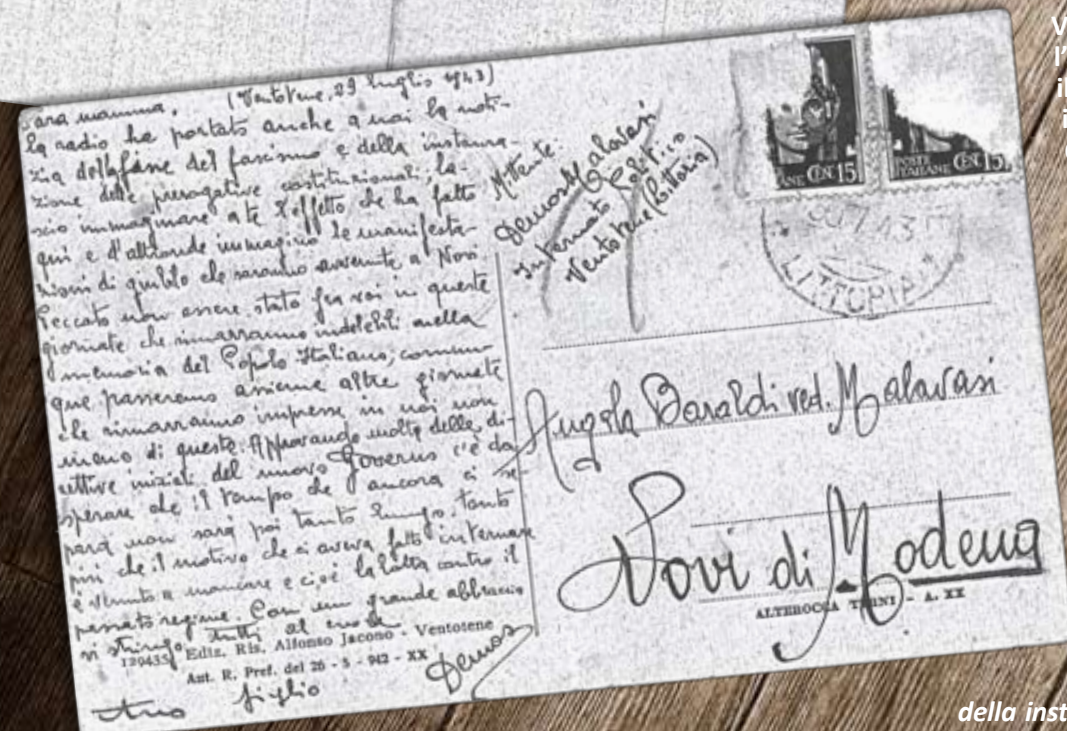 Cara mamma, (Ventotene, 29 luglio 1943)
la radio ha portato anche quai la noti-
zia della fine del fascismo e della instaura-
zione delle prerogative costituzionali; la-
scio immaginare a te l'effetto che ha fatto
qui e d'altronde immagino le manifesta-
zioni di giubilo che saranno avvenute a Novi
Peccato non essere stato fra voi in queste
giornate che rimarranno indelebili nella
memoria del Popolo Italiano; comun-
que passeremo assieme altre giornate
che rimarranno impresse in noi non
meno di queste. Approvando molte delle di-
rettive iniziali del nuovo Governo c'è da
sperare che il tempo che ancora ci se-
para non sarà poi tanto lungo, tanto
più che il motivo che ci aveva fatto internare
è venuto a mancare e cioè la lotta contro il
passato regime. Con un grande abbraccio
vi stringo tutti al cuore
tuo figlio
Demos
120435 Ediz. Ris. Alfonso Jacono - Ventotene
Aut. R. Pref. del 26 - 3 - 942 - XX
Mittente:
Demos Malavasi
Internato Politico
Ventotene (Littoria)
CEN. 15
POSTE ITALIANE CEN. 15
30.7.43
LITTORIA
Angela Baraldi ved. Malavasi
Novi di Modena
ALTEROCCA TERNI - A. XX
della inst